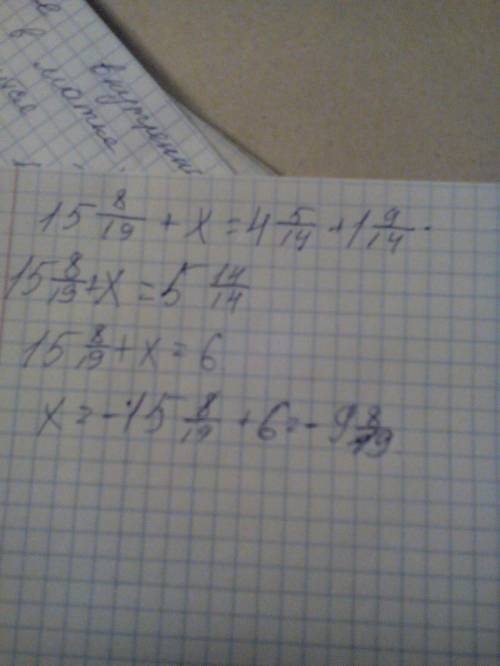 в
внутренн
15 8/19 + x = 4 5/14 + 1 9/14.
15 8/19 + x = 5 14/14
15 8/19 + x = 6
x = -15 8/19 + 6 = -9 8/19